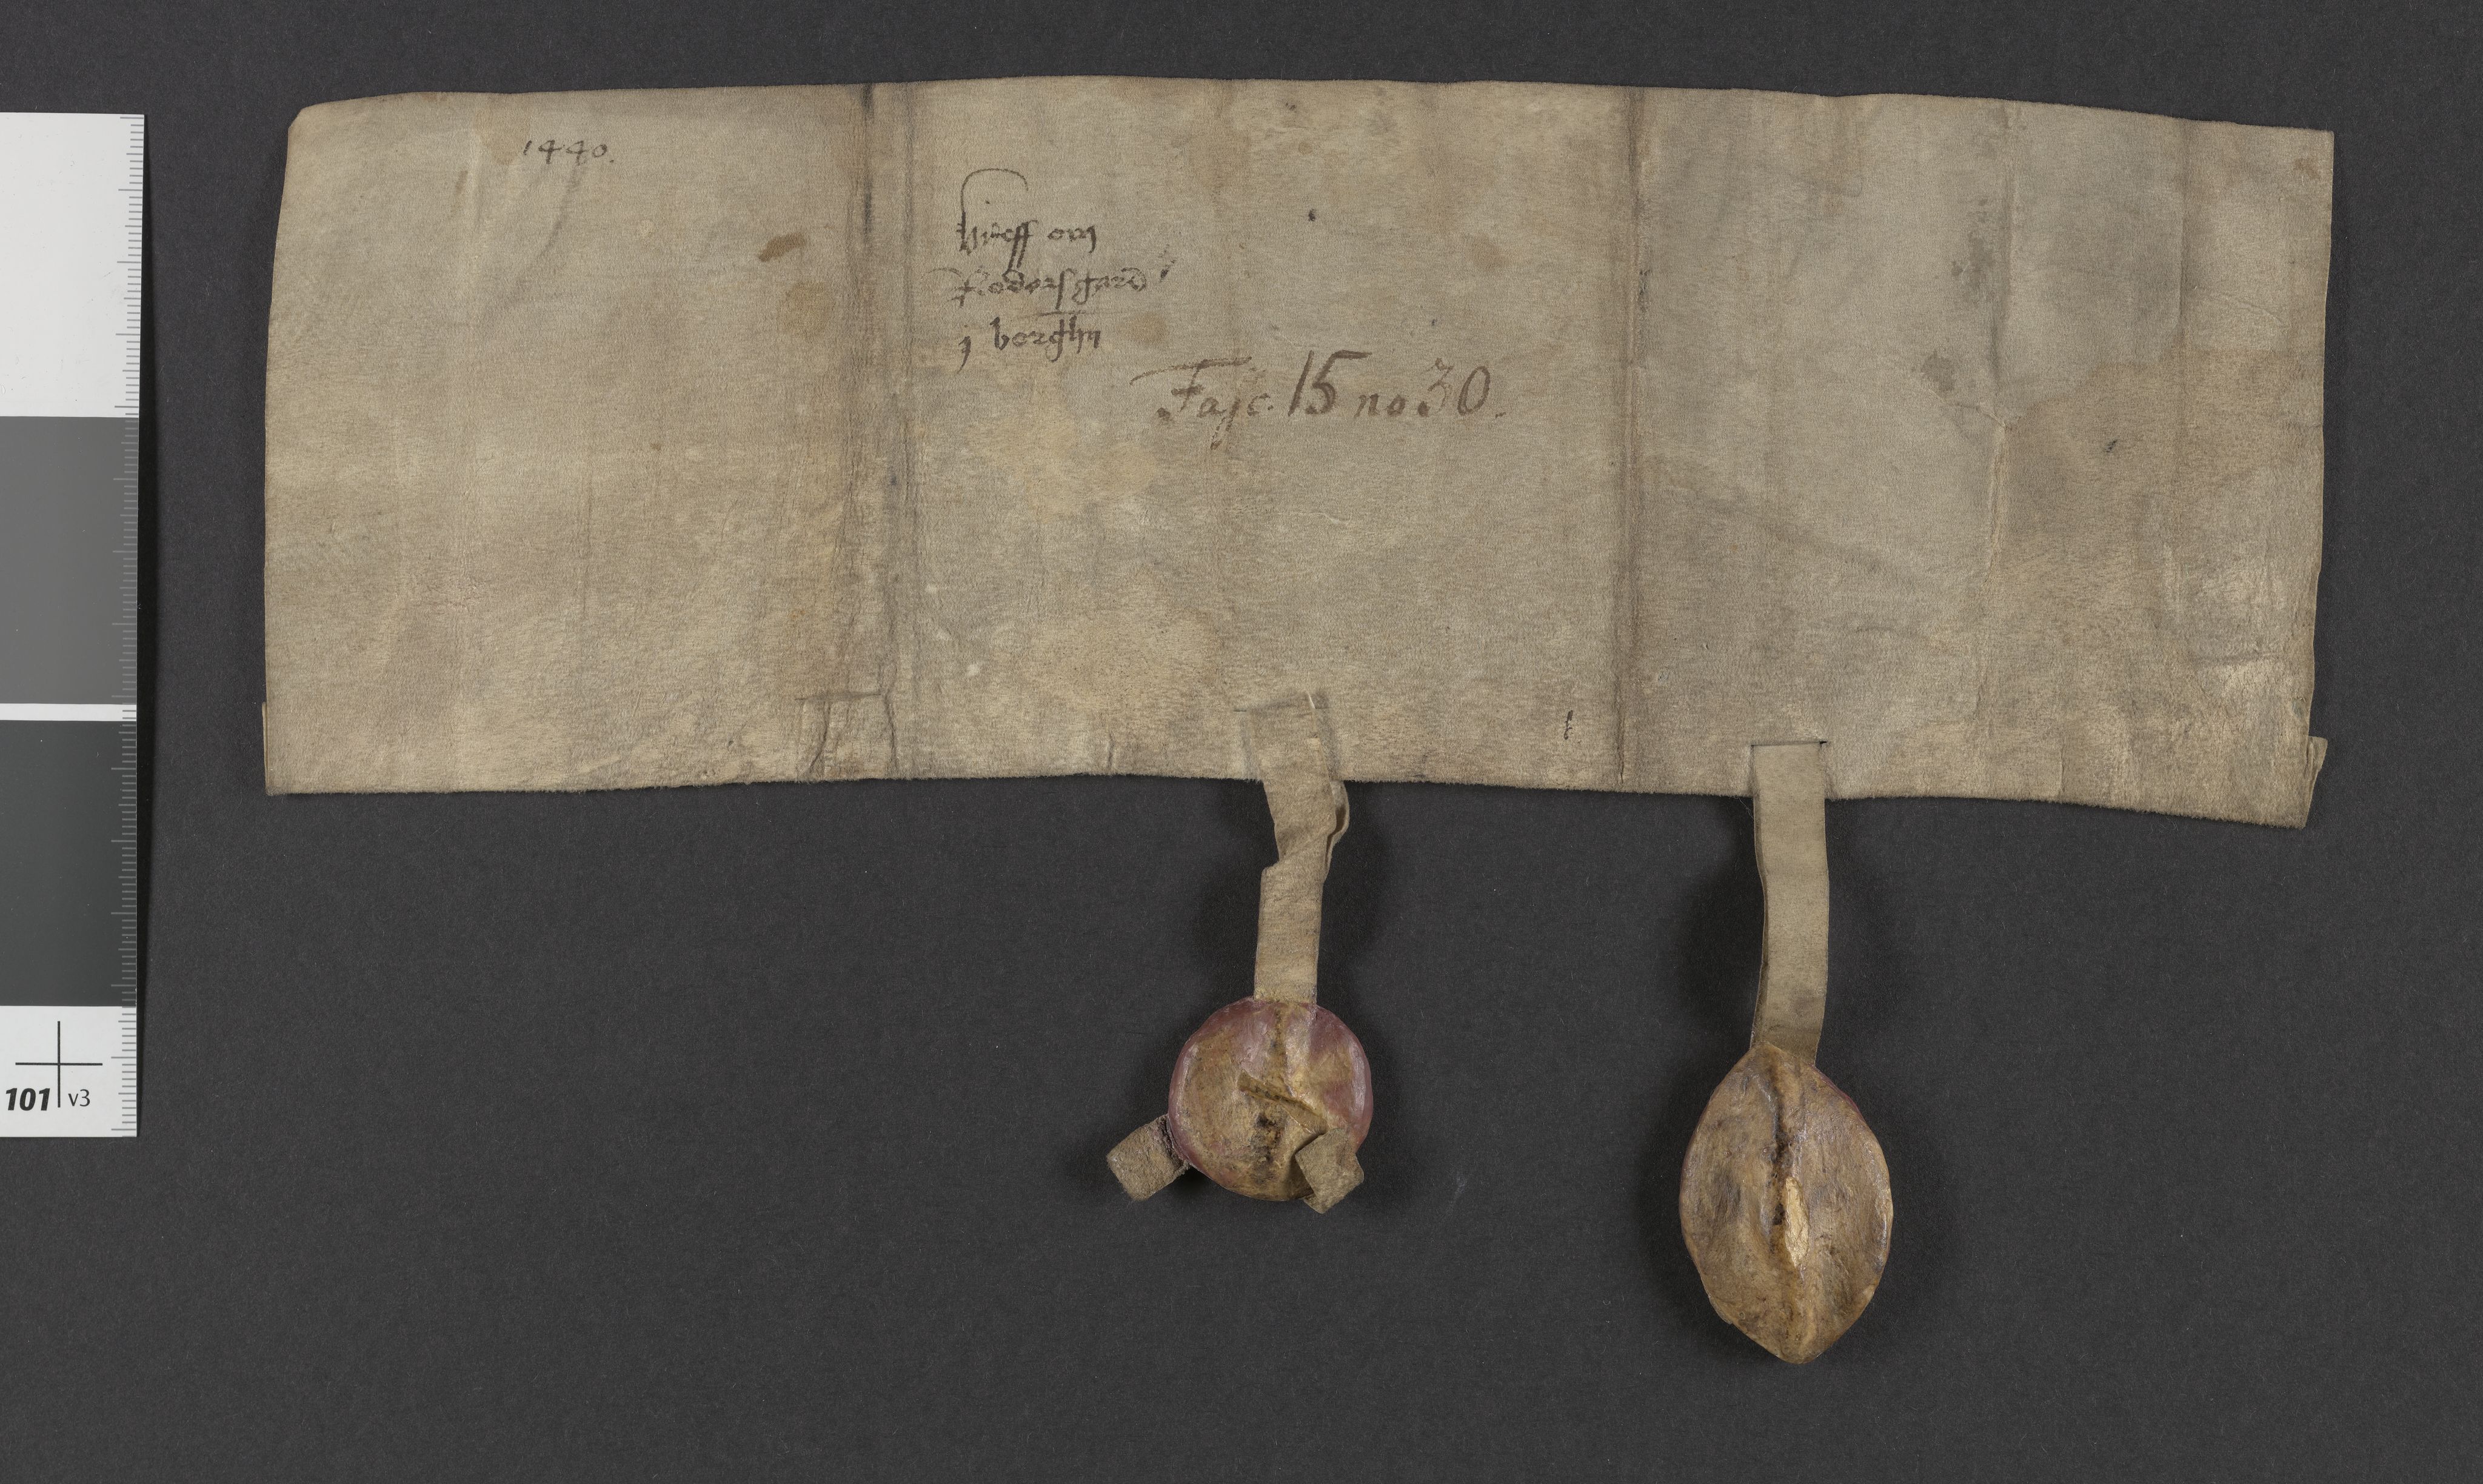 1440.
breff om
Redersgard
j berghn
Fasc. 15 no 30.
101 v3